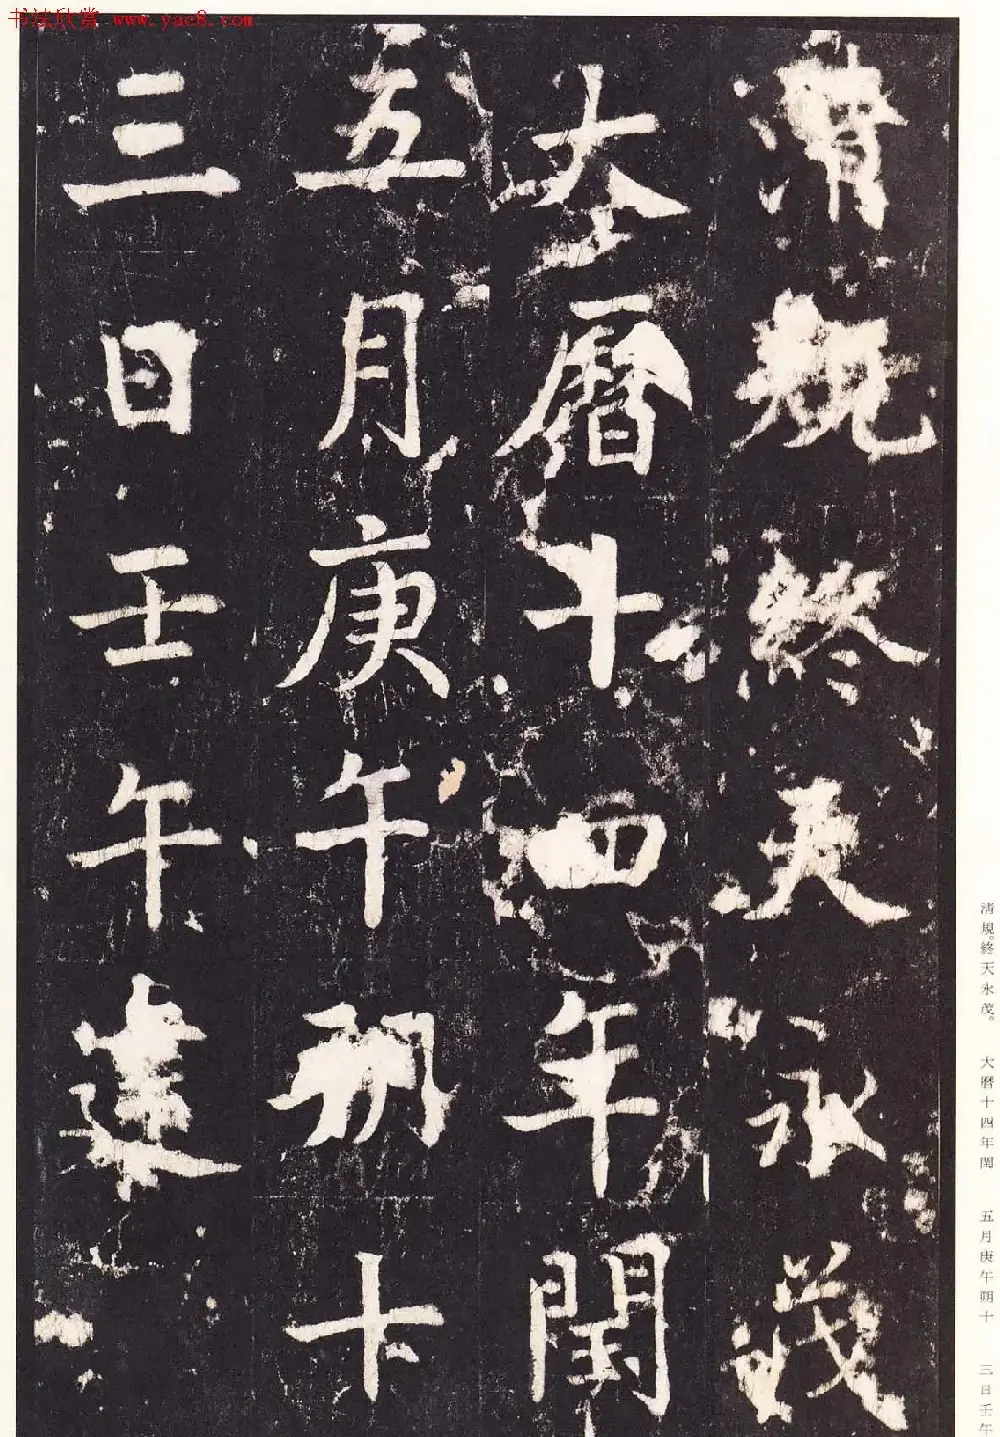 书法欣赏 www.yac8.com
清規終天永茂
大曆十四年閏
五月庚午朔十
三日壬午建
清規。終天永茂。 大曆十四年閏 五月庚午朔十 三日壬午